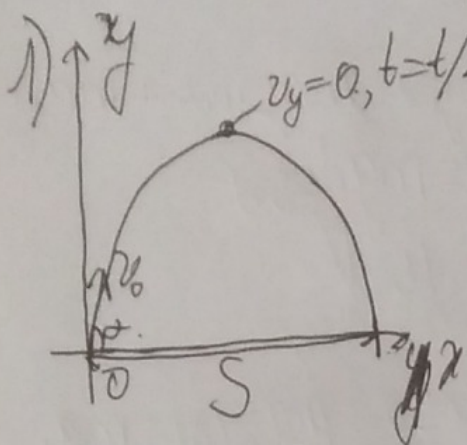 1) y
v_y=0, t=t/
v₀
α
0 S x